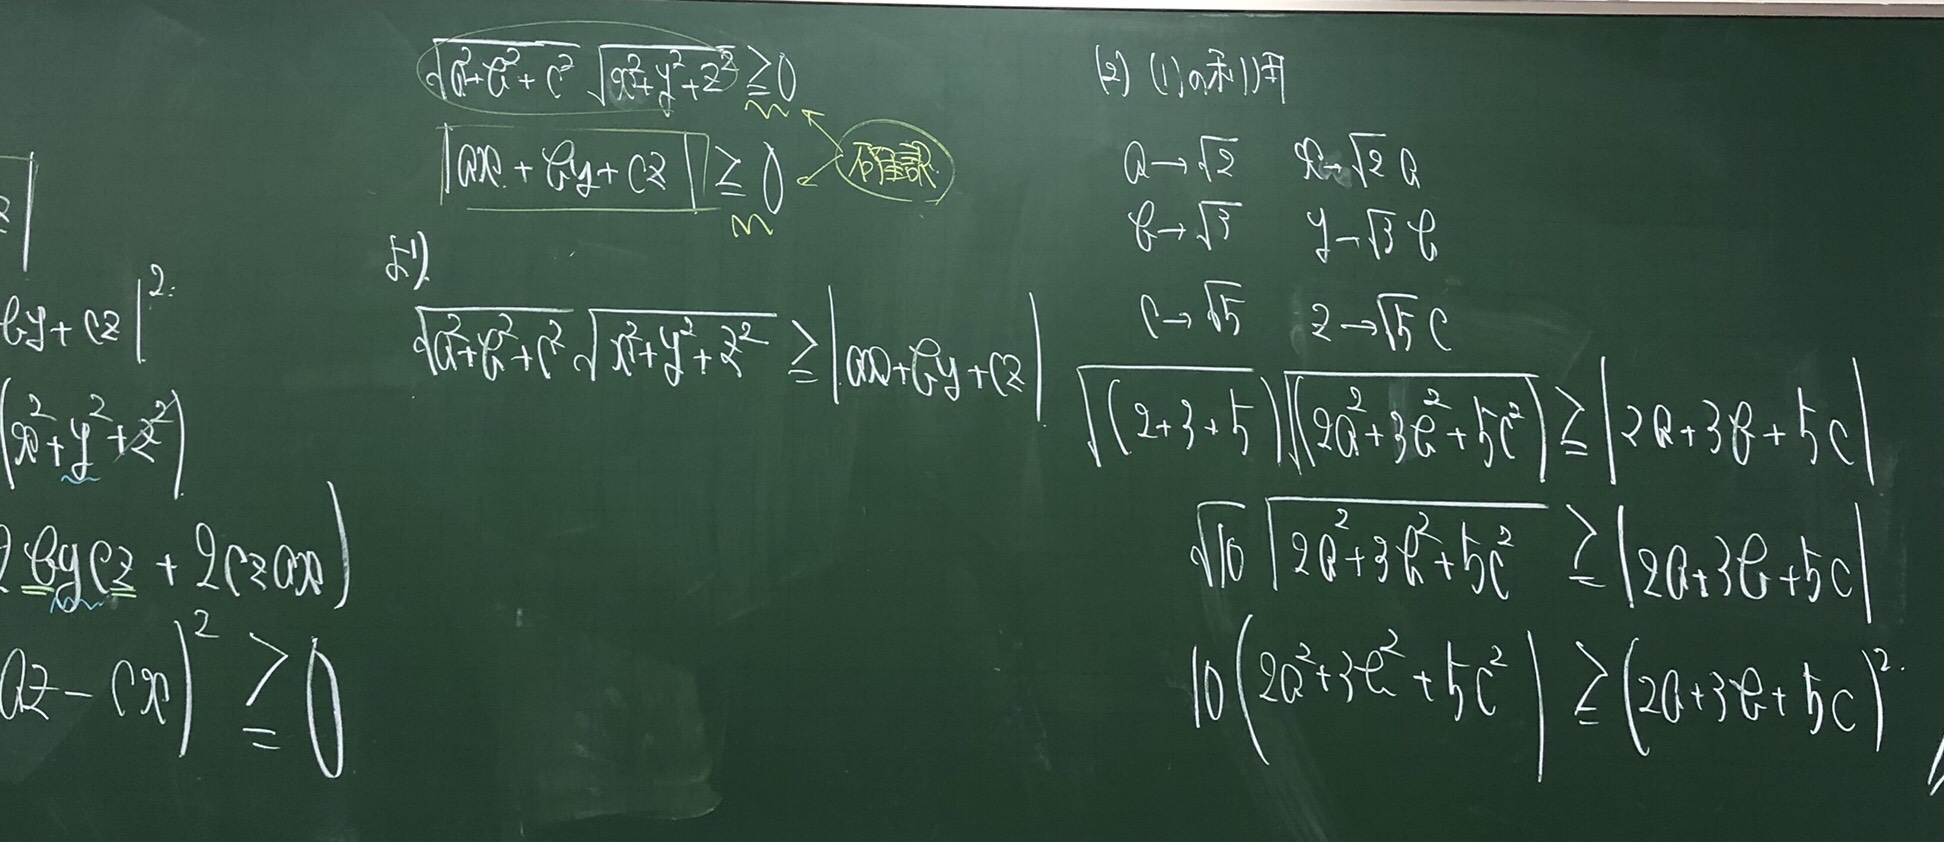 z|
by+cz|²
(x²+y²+z²)
2bycz+2czax)
az-cx)² ≧0
√a²+b²+c² √x²+y²+z² ≧0
|ax+by+cz| ≧0
確認
より
√a²+b²+c² √x²+y²+z² ≧|ax+by+cz|
(2) (1)の利用
a→√2 x→√2 a
b→√3 y→√3 b
c→√5 z→√5 c
√(2+3+5) √(2a²+3b²+5c²) ≧|2a+3b+5c|
√10 √2a²+3b²+5c² ≧|2a+3b+5c|
10(2a²+3b²+5c²) ≧(2a+3b+5c)²